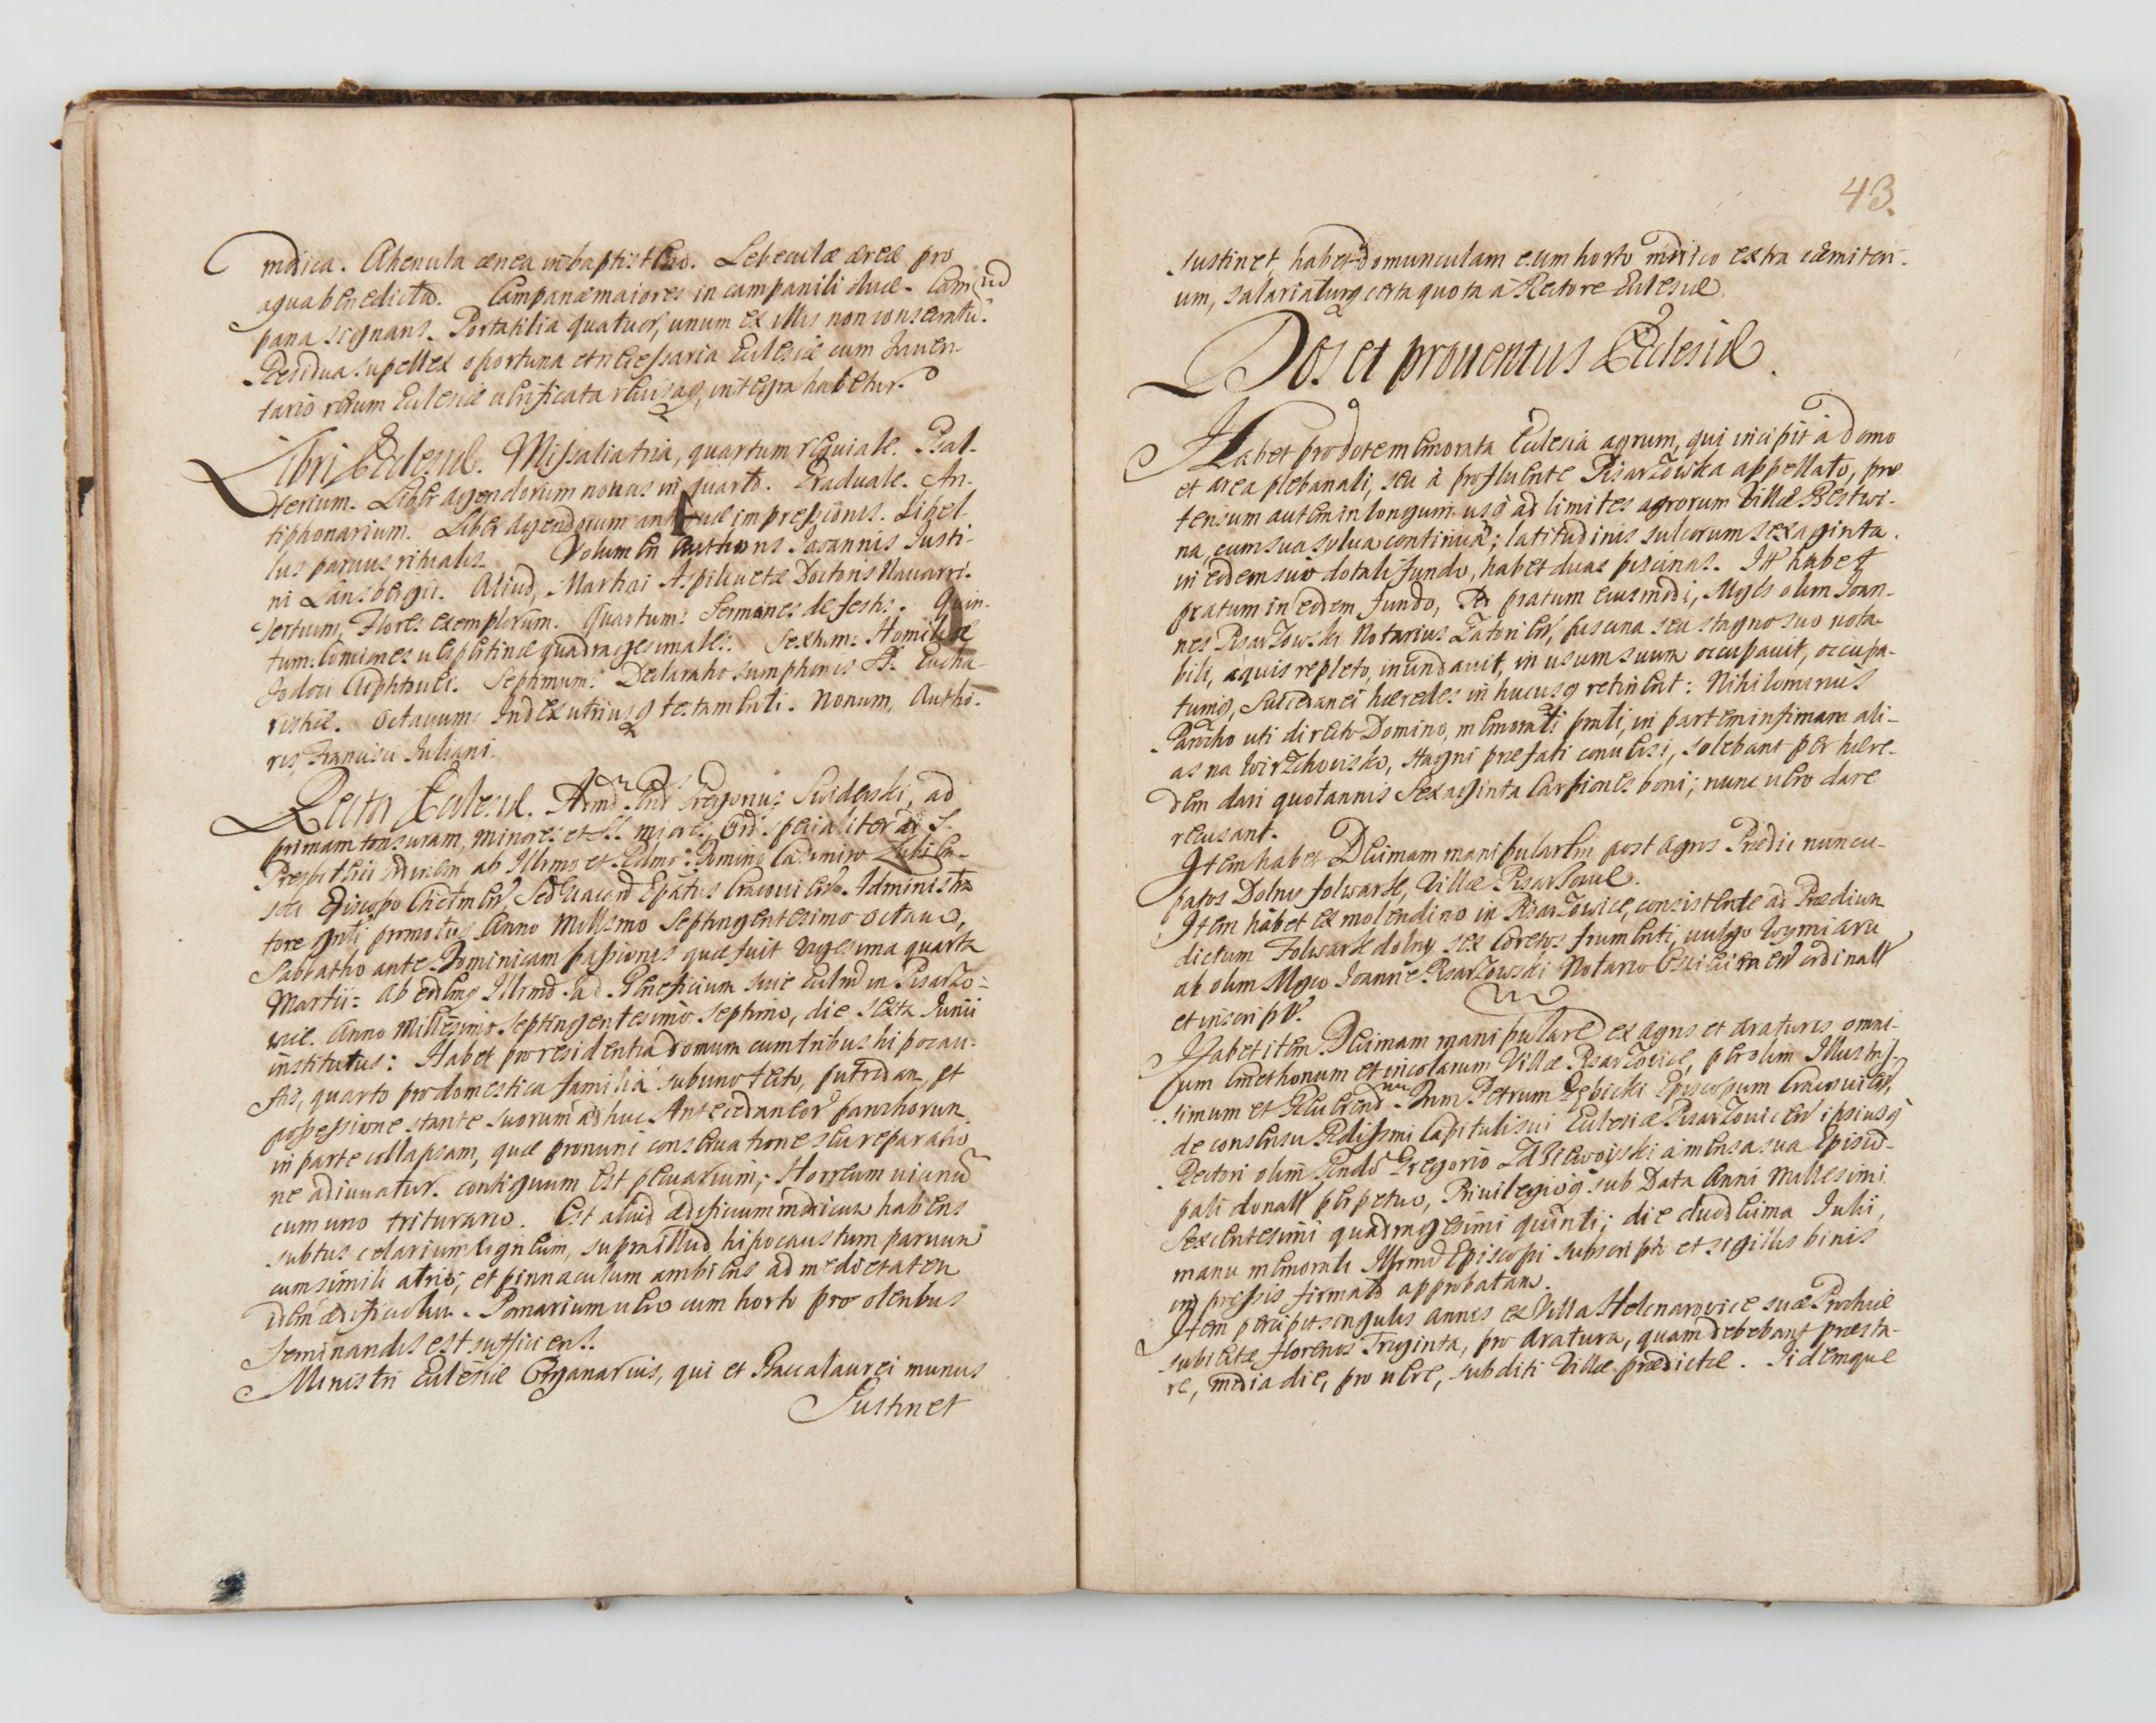 modica. Ahenula ænea in baptisterio. Lebeculæ æreæ pro
aqua benedicta. Campanæ maiores in campanili duæ. Cam-
pana signans. Portatilia quatuor, unum ex illis non consecratū.
Residua supellex oportuna et necessaria Ecclesiæ cum Inuen-
tario rerum Ecclesiæ uerificata reuisaq, integra habetur.
Libri Ecclesiæ. Missalia tria, quartum requiale. Psal-
terium. Liber agendorum nouus in quarto. Graduale. An-
tiphonarium. Liber agendorum antiquæ impressionis. Libel-
lus paruus ritualis. Volumen Authoris Joannis Justi-
ni Lansbergii. Aliud, Martini Aspilcuetæ Doctoris Nauarri.
Tertium, Flores exemplorum. Quartum: Sermones de festis. Quin-
tum: Comiones uespertinæ quadragesimales. Sextum: Homiliæ
Jodoci Clichtouei. Septimum: Declaratio SS. Eucha-
ristiæ. Octauum: Index utriusq testamenti. Nonum, Autho-
ris, Francisci Juliani.
Rector Ecclesiæ. Gregorius Swiderski, ad
primam tonsuram, minores et SS. majores, Ord: specialiter ad S.
Presbiterii ordinem ab Illrmo et Rdmo: Domino Casimiro Łubien-
ski Episcopo Chelmen, Sede uacan Epatus Cracouien. Administra
tore promotus Anno Millsmo Septingentesimo octauo,
Sabbatho ante Dominicam passionis quæ fuit uigesima quarta
Martii: ab eodmq Illrmo ad Beneficium suæ Ecclnd in Pisarzo-
wice. Anno Millesimo Septingentesimo Septimo, die sexta Junii
institutus: Habet pro residentia domum cum tribus hipocau-
stis, quarto pro domestica familia sub uno tecto, putridam, et
possessione stante suorum adhuc Antecedaneor parochorum
in parte collapsam, quæ pronunc conseruatione seu reparatio
ne adiuuatur. contiguum est pecuarium; Horreum uicinū
cum uno triturario. Est aliud ædificium modicum habens
subtus celarium ligneum, supra illud hipocaustum paruum
cum simili atrio; et pinnaculum ambiens ad medietatem
idem ædificium. Pomarium uero cum horto pro oleribus
seminandis est sufficiens.
Ministri Ecclesiæ Organarius, qui et Baccalaurei munus
Sustinet
43.
sustinet, habet domunculam cum horto modico extra cæmiteri-
um, salariaturq certa quota a Rectore Ecclesiæ.
Dos et prouentus Ecclesiæ.
Habet pro dote memorata Ecclesia agrum, qui incipit à domo
et area plebanali, seu à profluente Pisarzowka appellato, pro
tensum autem in longum usq ad limites agrorum Villæ Bestwi-
na, cum sua sylua continua; latitudinis sulcorum sexaginta.
in eodem suo dotali fundo, habet duas piscinas. Itt habet
pratum in eodem fundo, sed pratum eiusmodi, Mgfcs olim Joan-
nes Pisarzowski Notarius Zatorien, piscina seu stagno suo nota-
bili, aquis repleto, inundauit, in usum suum occupauit, occupa-
tumq, Succedanei hæredes in hucusq retinent: Nihilominus
Parocho uti directo Domino, memorati prati, in partem infimam ali-
as na Wirzchowisko, stagni præfati conuersi, solebant per hære-
dem dari quotannis Sexaginta Carpiones boni; nunc uero dare
recusant.
Item habet Decimam manipularem post agros Prædii nuncu-
patos Dolny folwark, Villæ Pisarzowice.
Item habet ex molendino in Pisarzowice, consistente ad Prædium
dictum Folwark dolny sex Coretos frumenti, uulgo Wymiaru
ab olim Mgco Joanne Pisarzowski Notario ordinatt
et inscript.
Habet item Decimam manipularem ex agris et araturis omni-
um Cmethonum et incolarum Villæ Pisarzowice, per olim Illustris-
simum et Reuerend Dnm Petrum Gębicki Episcopum Cracouien,
de consensu Rdissimi Capituli sui Ecclesiæ Pisarzowicen ipsiusq
Rectori olim Gregorio Zdziewoyski à mensa sua Episco-
pali donatt perpetuo, Priuilegioq sub Data Anni Millesimi
Sexcentesimi quadragesimi quinti; die duodecima Julii,
manu memorati Illrmi Episcopi subscripto et sigillis binis
impressis firmato approbatam.
Item percipit singulis annis ex Villa Helcnarowice suæ Parochiæ
subiecta florenos Triginta, pro aratura, quam debebant præsta-
re, media die, pro uere, subditi Villæ prædictæ. Iidemque